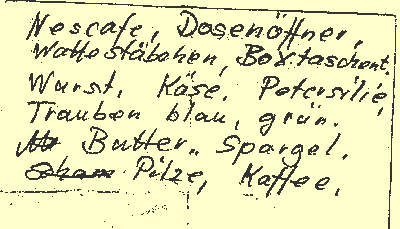 Nescafe, Dosenöffner,
Wattestäbchen, Boxtaschent.
Wurst, Käse, Petersilie,
Trauben blau, grün.
Butter, Spargel,
Pilze, Kaffee,